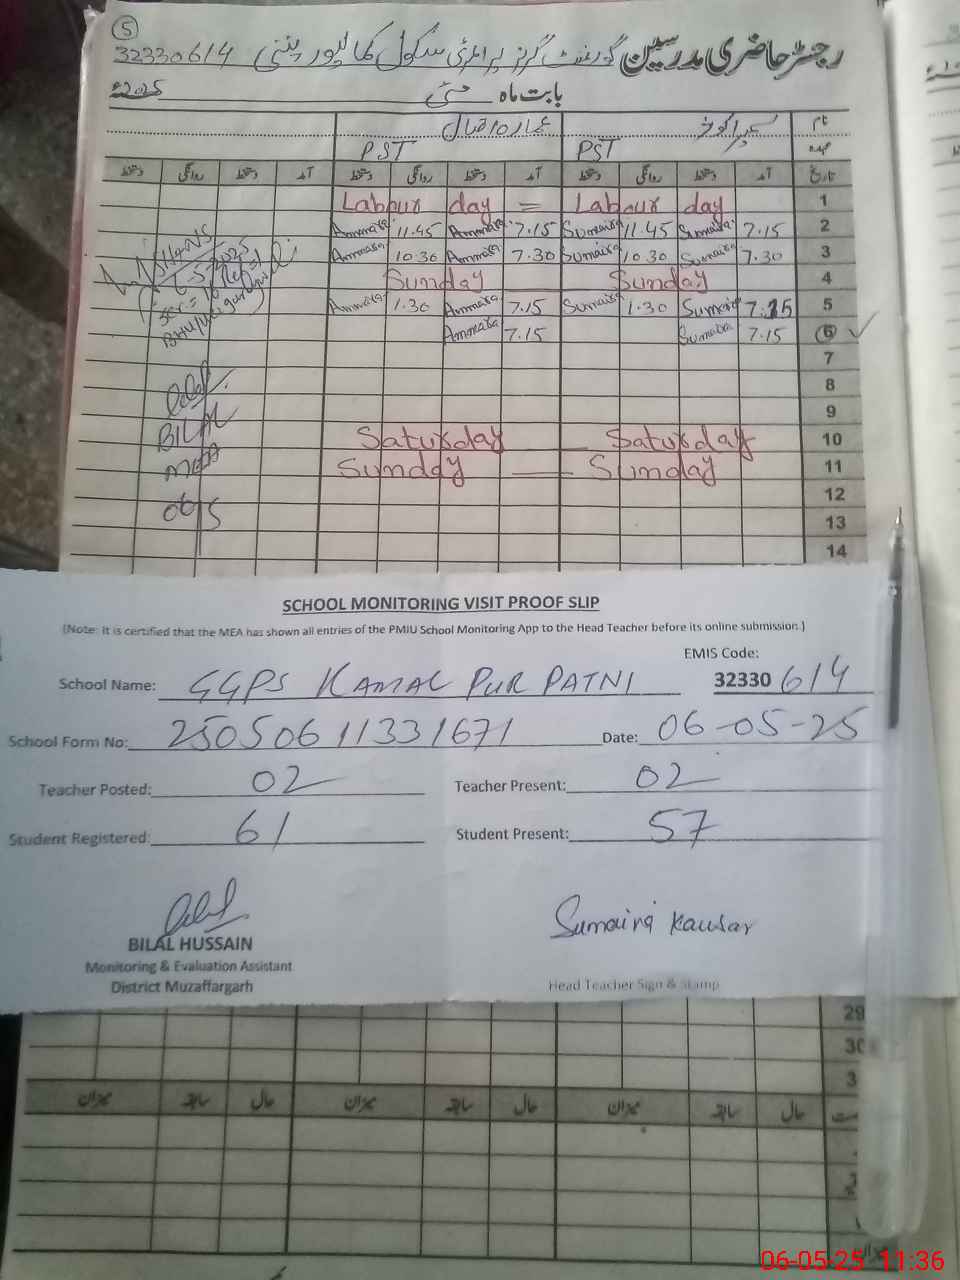 5
رجسٹر حاضری مدرسین گورنمنٹ گرلز پرائمری سکول کمالپور پتنی 32330614
بابت ماہ مئی 2025ء
نام
عمارہ اقبال
عہدہ PST PST
تاریخ آمد دستخط روانگی دستخط آمد دستخط روانگی دستخط آمد دستخط روانگی دستخط
Labour day = Labour day 1
Ammara 11.45 Ammara 7.15 Sumaira 11.45 Sumaira 7.15 2
Ammara 10.30 Ammara 7.30 Sumaira 10.30 Sumaira 7.30 3
Sunday Sunday 4
Ammara 1.30 Ammara 7.15 Sumaira 1.30 Sumaira 7.15 5
Ammara 7.15 Sumaira 7.15 6
7
8
9
Saturday Saturday 10
Sunday Sunday 11
12
13
14
BILAL
MEA
SCHOOL MONITORING VISIT PROOF SLIP
(Note: It is certified that the MEA has shown all entries of the PMIU School Monitoring App to the Head Teacher before its online submission.)
EMIS Code:
School Name: GGPS KAMAL PUR PATNI 32330 614
School Form No: 25050611331671 Date: 06-05-25
Teacher Posted: 02 Teacher Present: 02
Student Registered: 61 Student Present: 57
Sumaira Kausar
BILAL HUSSAIN
Monitoring & Evaluation Assistant
District Muzaffargarh Head Teacher Sign & Stamp
29
30
3
حال سابقہ میزان حال سابقہ میزان حال سابقہ میزان
06-05-25 11:36